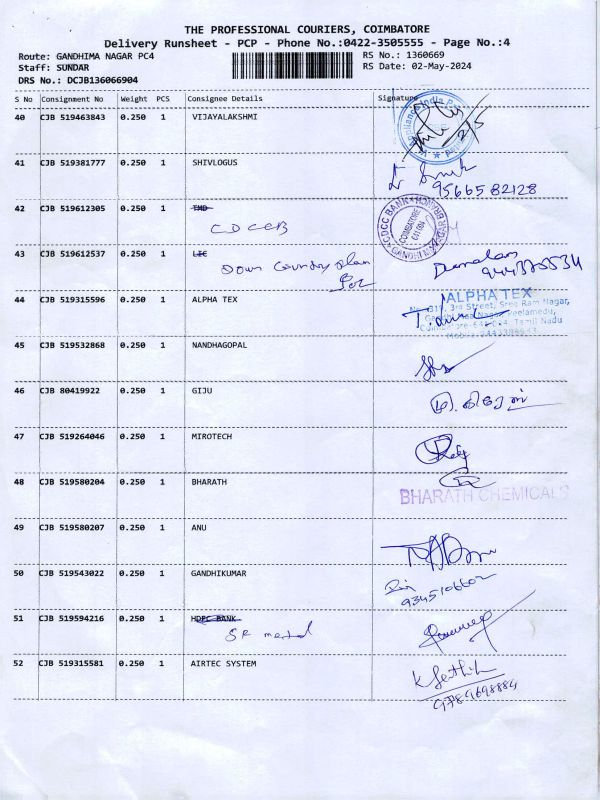 THE PROFESSIONAL COURIERS, COIMBATORE
Delivery Runsheet - PCP - Phone No.:0422-3505555 - Page No.:4
Route: GANDHIMA NAGAR PC4 RS No.: 1360669
Staff: SUNDAR RS Date: 02-May-2024
DRS No.: DCJB136066904
S No Consignment No Weight PCS Consignee Details Signature
40 CJB 519463843 0.250 1 VIJAYALAKSHMI
2/5
41 CJB 519381777 0.250 1 SHIVLOGUS
9566582128
42 CJB 519612305 0.250 1 TMD
CDCCB
CDCC BANK
COIMBATORE
43 CJB 519612537 0.250 1 LIC
Down Country plan
44 CJB 519315596 0.250 1 ALPHA TEX
ALPHA TEX
3rd Street, Sree Ram Nagar,
Tamil Nadu
45 CJB 519532868 0.250 1 NANDHAGOPAL
46 CJB 80419922 0.250 1 GIJU
47 CJB 519264046 0.250 1 MIROTECH
48 CJB 519580204 0.250 1 BHARATH
BHARATH CHEMICALS
49 CJB 519580207 0.250 1 ANU
50 CJB 519543022 0.250 1 GANDHIKUMAR
9345106602
51 CJB 519594216 0.250 1 HDFC BANK
SR metal
52 CJB 519315581 0.250 1 AIRTEC SYSTEM
K Sethik
9789698884